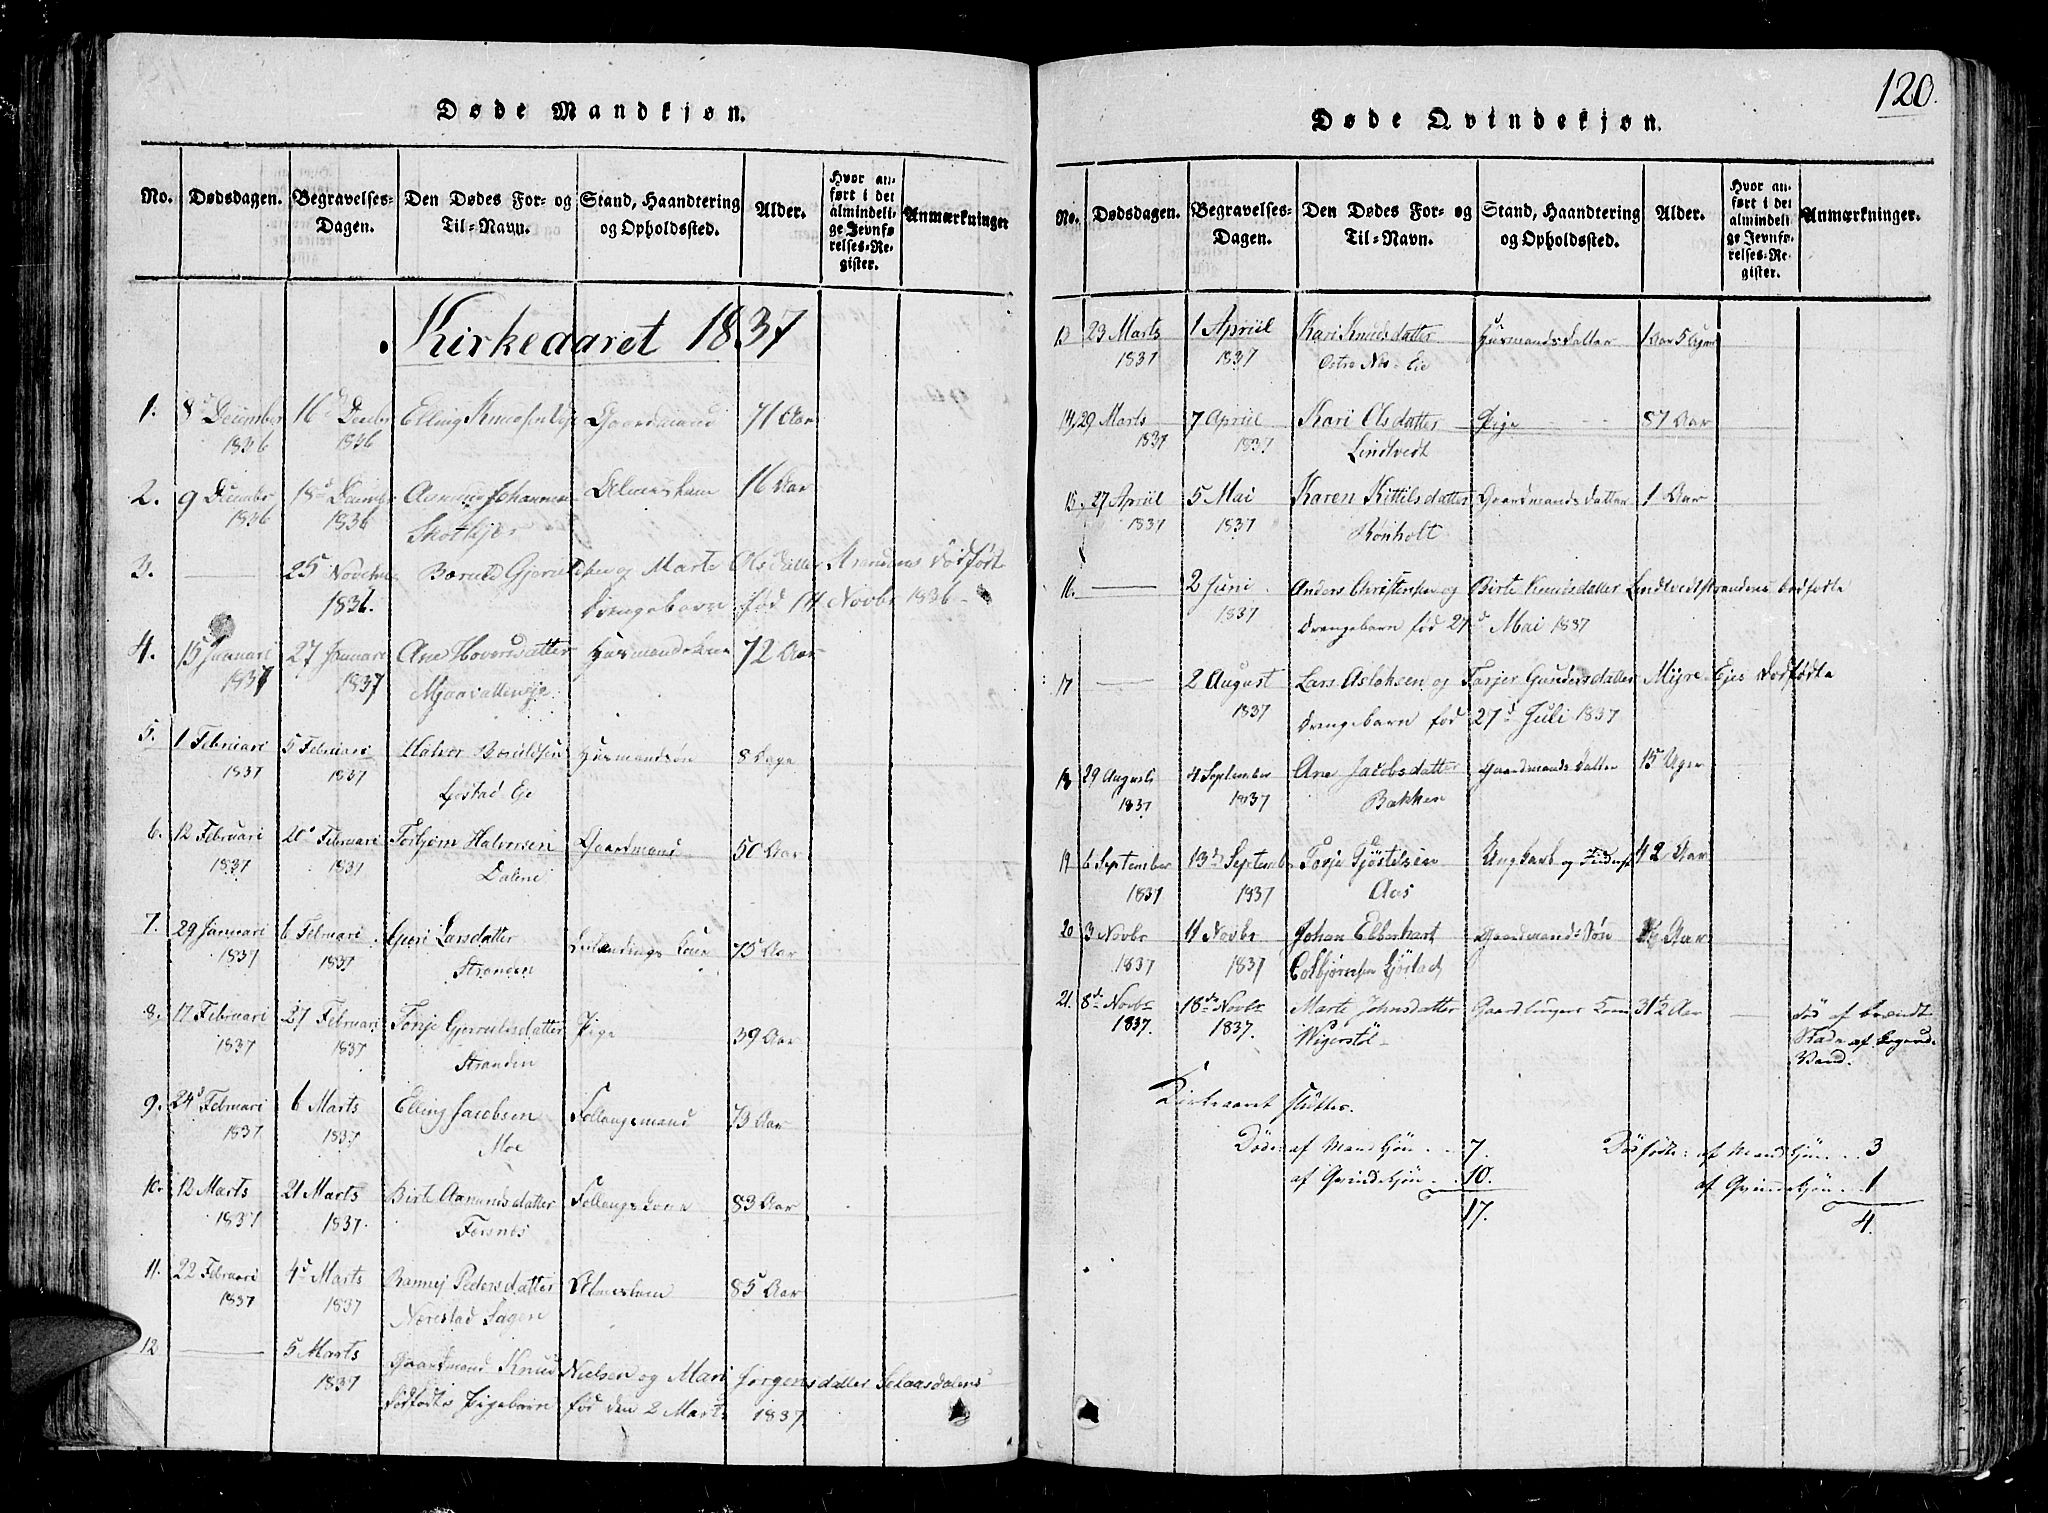 120.
Døde Mandkjøn.
No. Dødsdagen. Begravelses-Dagen. Den Dødes For- og Til-Navn. Stand, Haandtering og Opholdssted. Alder. Hvor anført i det almindelige Jevnførelses-Register. Anmærkninger
Kirkeaaret 1837
1. 8d December 16d Decebr Elling Knudsen Gaardmand 71 Aar
1836 1836
2. 9 December 18d Decembr Asmund Johannesen Almeslem 16 Aar
1836 1836 Skotkjer
3. — 25 Novembr Bæruld Gjeruldsen og Marte Olsdatter Strandens dødfødt
1836. Drengebarn fød 14 Novbr 1836 -
4. 15 Januari 27 Januari Ane Hoversdatter Huusmandskone 72 Aar
1837 1837 Mjaavatteneje
5. 1 Februari 5 Februari Halvor Bæruldsen Huusmandsøn 8 Dage
1837 1837 Gjøstad Eje
6. 12 Februari 20d Februari Torbjørn Halvorsen Gaardmand 50 Aar
1837 1837 Dalene
7. 29 Januari 6 Februari Guri Larsdatter 75 Aar
1837 1837 Stranden
8. 17 Februari 27 Februari Torje Gjeruldsdatter Pige 39 Aar
1837 1837 Stranden
9. 24d Februari 6 Marts Elling Jacobsen Follaugsmand 73 Aar
1837 1837 Moe
10. 12 Marts 21 Marts Birte Aamundsdatter Follaugskone 83 Aar
1837 1837. Fosnes
11. 22 Februari 4d Marts Rannei Pedersdatter Almeslem 85 Aar
1837 1837 Nærestad Hagen
12 — 5 Marts Gaardmand Knud Nielsen og Mari Jørgensdatter Selaasdalens
1837 dødfødte Pigebarn fød den 2 Marts 1837
Døde Qvindekjøn.
No. Dødsdagen. Begravelses-Dagen. Den Dødes For- og Til-Navn. Stand, Haandtering og Opholdssted. Alder. Hvor anført i det almindelige Jevnførelses-Register. Anmærkninger.
13 23 Marts 1 Apriil Kari Knudsdatter Huusmands datter 1 Aar 5 Uger
1837 1837 Østre Næs Eie
14 29 Marts 7 Apriil Kari Olsdatter Pige 87 Aar
1837 1837 Lindtveit
15. 27 Apriil 5 Mai Karen Kittilsdatter Gaardmands datter 1 Aar
1837 1837 Rønholt
16. — 2 Juni Anders Christensen og Birte Knudsdatter Lindtveitstrandens dødfødte
1837 Drengebarn fød 27d Mai 1837
17 — 2 August Lars Aslaksen og Torjer Gundersdatter Myre Ejes Dødfødte
1837 Drengebarn fød 27d Juli 1837
18 29 August 4 September Ane Jacobsdatter Gaardmands datter 15 Uger
1837 1837 Bakken
19 6 September 13de Septemb Torje Gjøstelsen Ungkarl og 42 Aar
1837 1837 Aas
20 3 Novbr 11 Novbr Johan Eberhart Gaardmands Søn Aar
1837 1837 Colbjørnsen Gjøstad
21. 8de Novbr 18de Novbr Marte Johnsdatter Gaardbrugers Kone 31½ Aar — Død af brændt
1837. 1837. Wigerstøl - Skade af kogend-
Vand.
Kirkeaaret slutter.
Døde: af Mandkjøn . . 7. Dødfødte: af Mandkjøn . . . 3
af Qvindekjøn . . 10. af Qvindekjøn . . 1
17. 4.